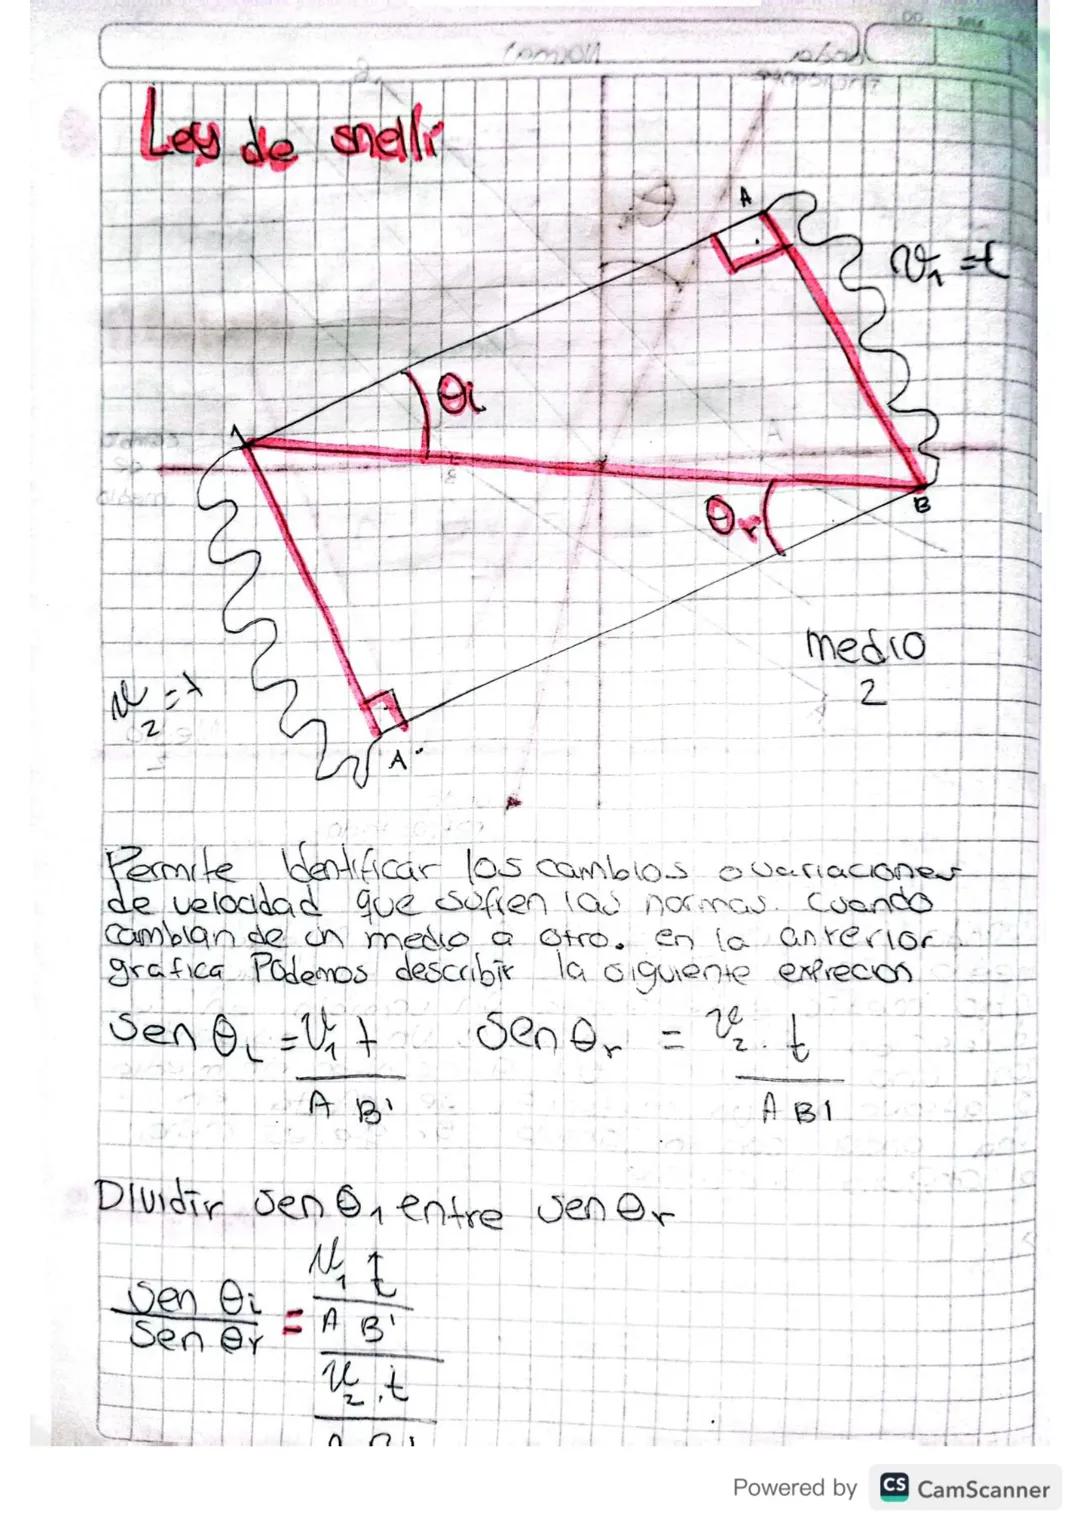 Ley de snell
A
v₁ = t
θi
A
B
θr
medio
2
v₂ = t
A'
Permite Identificar los cambios o variaciones
de velocidad que sufren las normas. cuando
cambian de un medio a otro. en la anterior
grafica Podemos describir la siguiente exprecion
Sen θi = v₁ t / A B'    Sen θr = v₂ . t / A B1
Dividir Sen θ1 entre Sen θr
Sen θi / Sen θr = v₁ t / A B' / v₂ . t / A B'
Powered by CS CamScanner